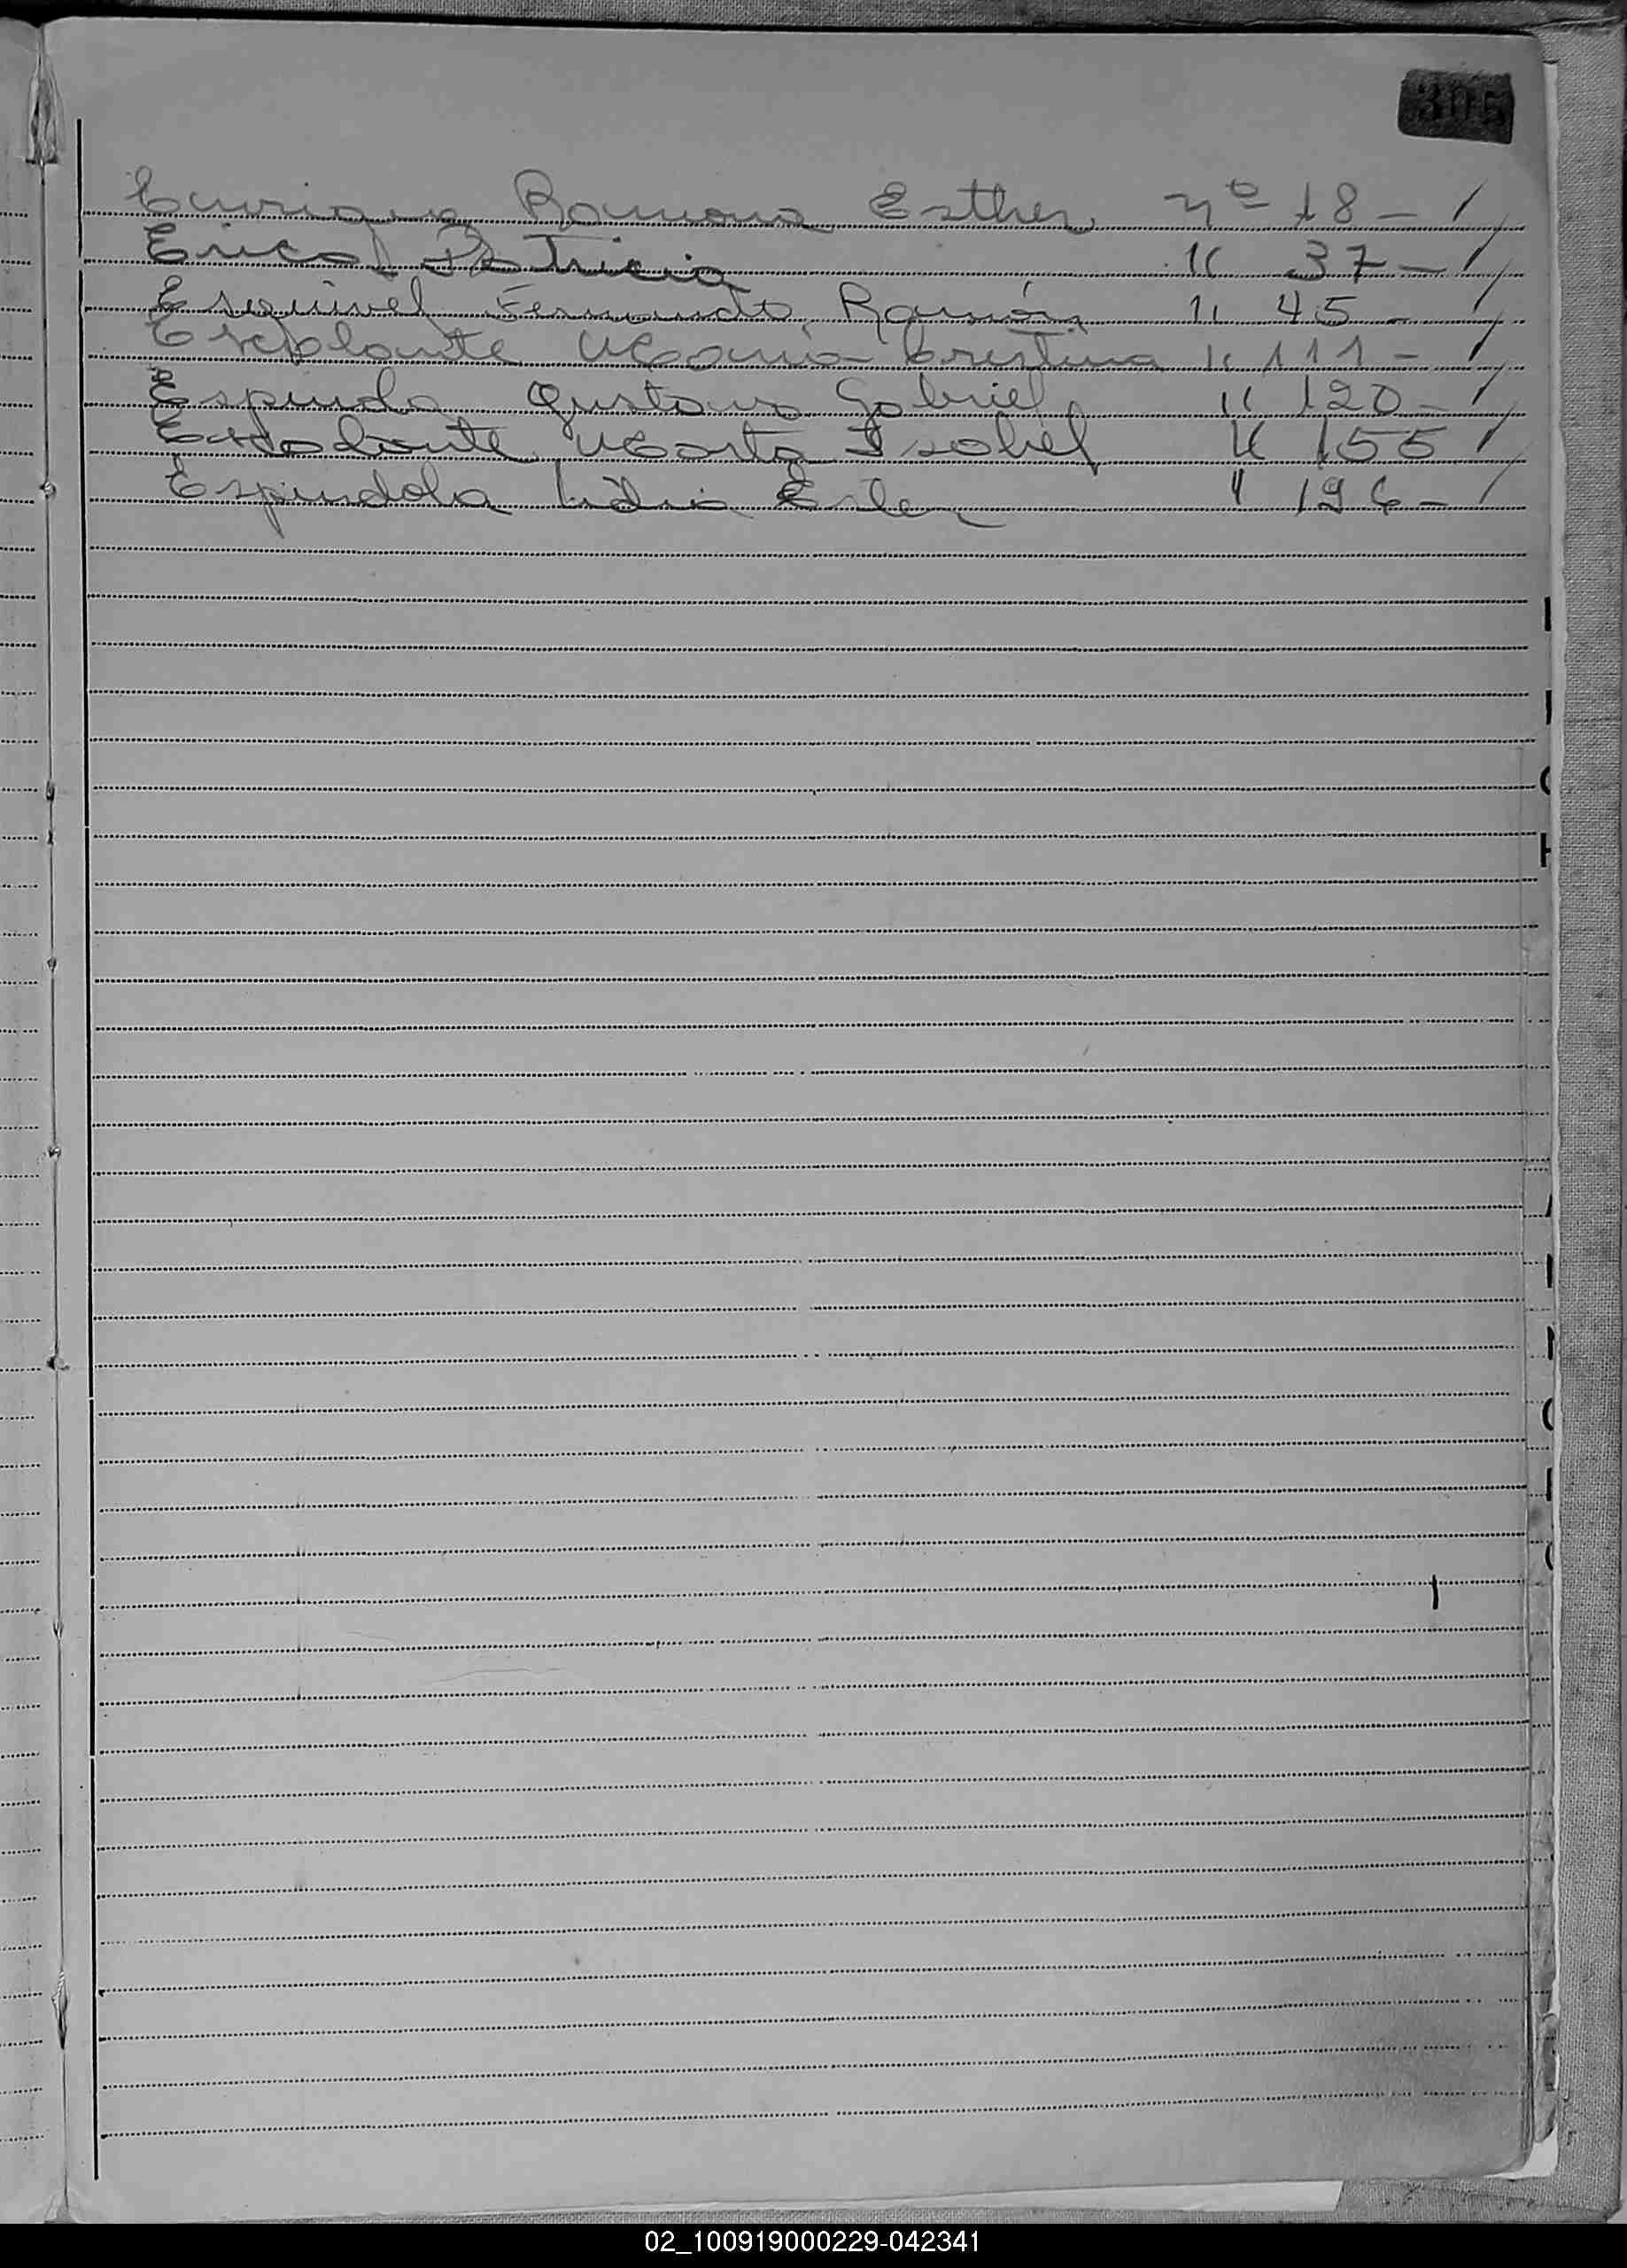 305
Enriquez Ramona Esther nº 18 - /
Erico Patricia " 37 - /
Esquivel Fernando Ramón " 45 - /
Escalante María Cristina " 111 - /
Espinola Gustavo Gabriel " 120 - /
Escalante Marta Isabel " 155 /
Espindola Lidia Ester " 196 - /
02_100919000229-042341